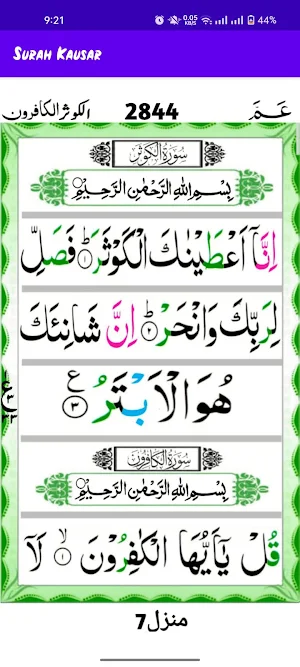 9:21 0.05 KB/S 44%
Surah Kausar
الكوثر الكافرون 2844 عَمَّ
سُورَةُ الْكَوْثَرِ
بِسْمِ اللهِ الرَّحْمٰنِ الرَّحِيْمِ
اِنَّاۤ اَعْطَيْنٰكَ الْكَوْثَرَ ؕ﴿۱﴾ فَصَلِّ
لِرَبِّكَ وَانْحَرْ ؕ﴿۲﴾ اِنَّ شَانِئَكَ
هُوَ الْاَبْتَرُ ﴿۳﴾ ع
سُورَةُ الْكَافِرُونَ
بِسْمِ اللهِ الرَّحْمٰنِ الرَّحِيْمِ
قُلْ يٰۤاَيُّهَا الْكٰفِرُوْنَ ۙ﴿۱﴾ لَاۤ
منزل7